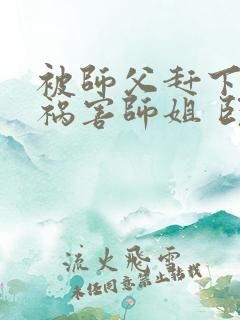 被師父赶下
祸害師姐
流火飛雲
未经同意禁止转载